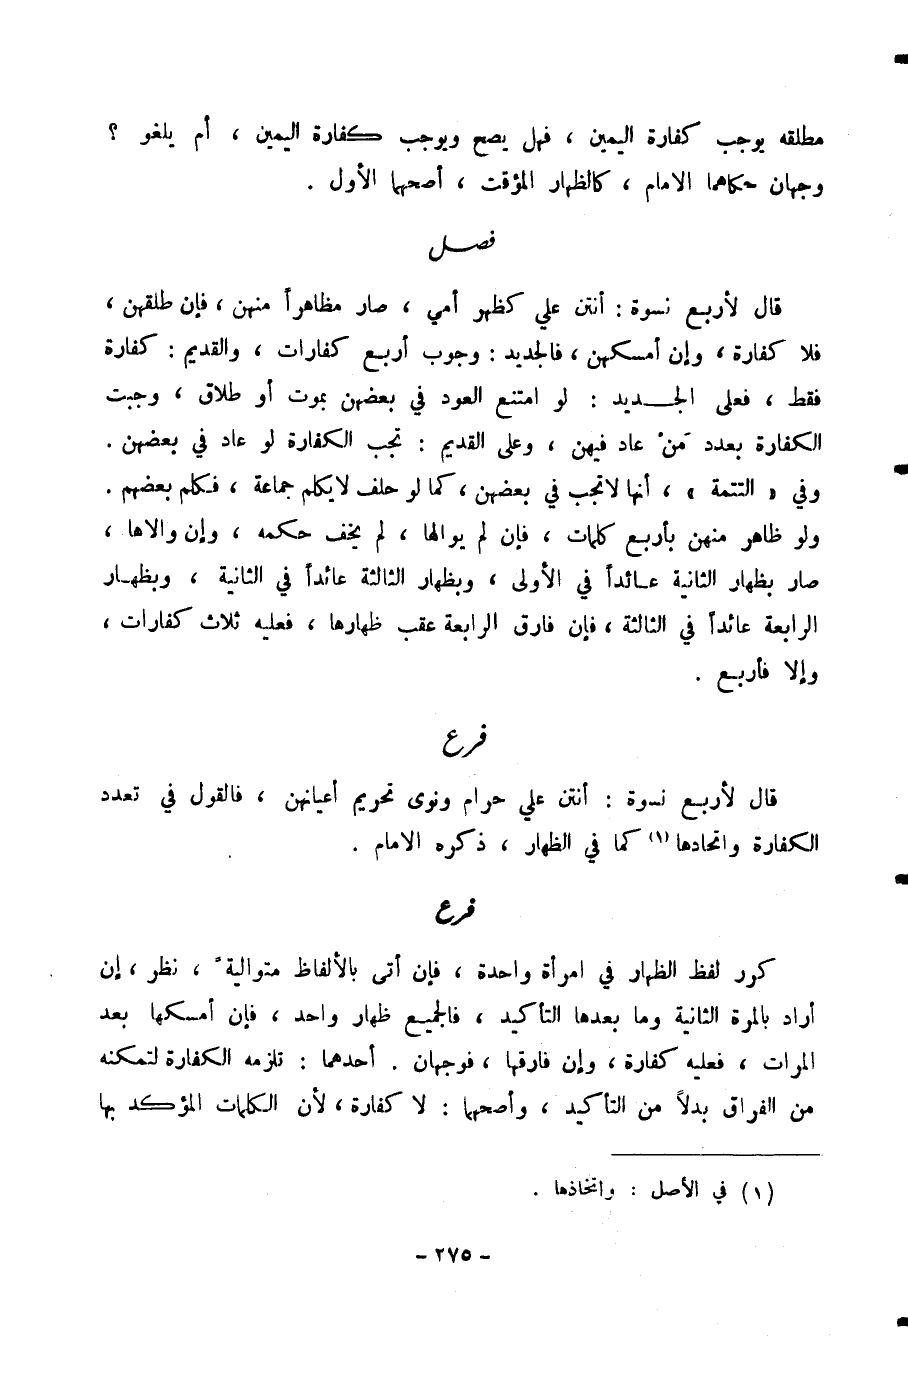 مطلقه يوجب كفارة اليمين ، فهل يصح ويوجب كفارة اليمين ، أم يلغو ؟
وجهان حكاهما الامام ، كالظهار المؤقت ، أصحها الأول .
فصل
قال لأربع نسوة : أنتن علي كظهر أمي ، صار مظاهراً منهن ، فإن طلقهن ،
فلا كفارة ، وإن أمسكهن ، فالجديد : وجوب أربع كفارات ، والقديم : كفارة
فقط ، فعلى الجديد : لو امتنع العود في بعضهن بموت أو طلاق ، وجبت
الكفارة بعدد مَنْ عاد فيهن ، وعلى القديم : تجب الكفارة لو عاد في بعضهن .
وفي « التتمة » ، أنها لاتجب في بعضهن ، كما لو حلف لايكلم جماعة ، فكلم بعضهم .
ولو ظاهر منهن بأربع كلمات ، فإن لم يوالها ، لم يخف حكمه ، وإن والاها ،
صار بظهار الثانية عائداً في الأولى ، وبظهار الثالثة عائداً في الثانية ، وبظهار
الرابعة عائداً في الثالثة ، فإن فارق الرابعة عقب ظهارها ، فعليه ثلاث كفارات ،
وإلا فأربع .
فرع
قال لأربع نسوة : أنتن علي حرام ونوى تحريم أعيانهن ، فالقول في تعدد
الكفارة واتحادها (١) كما في الظهار ، ذكره الامام .
فرع
كرر لفظ الظهار في امرأة واحدة ، فإن أتى بالألفاظ متوالية ، نظر ، إن
أراد بالمرة الثانية وما بعدها التأكيد ، فالجميع ظهار واحد ، فإن أمسكها بعد
المرات ، فعليه كفارة ، وإن فارقها ، فوجهان . أحدهما : تلزمه الكفارة لتمكنه
من الفراق بدلاً من التأكيد ، وأصحها : لا كفارة ، لأن الكلمات المؤكد بها
(١) في الأصل : واتخاذها .
- ٢٧٥ -